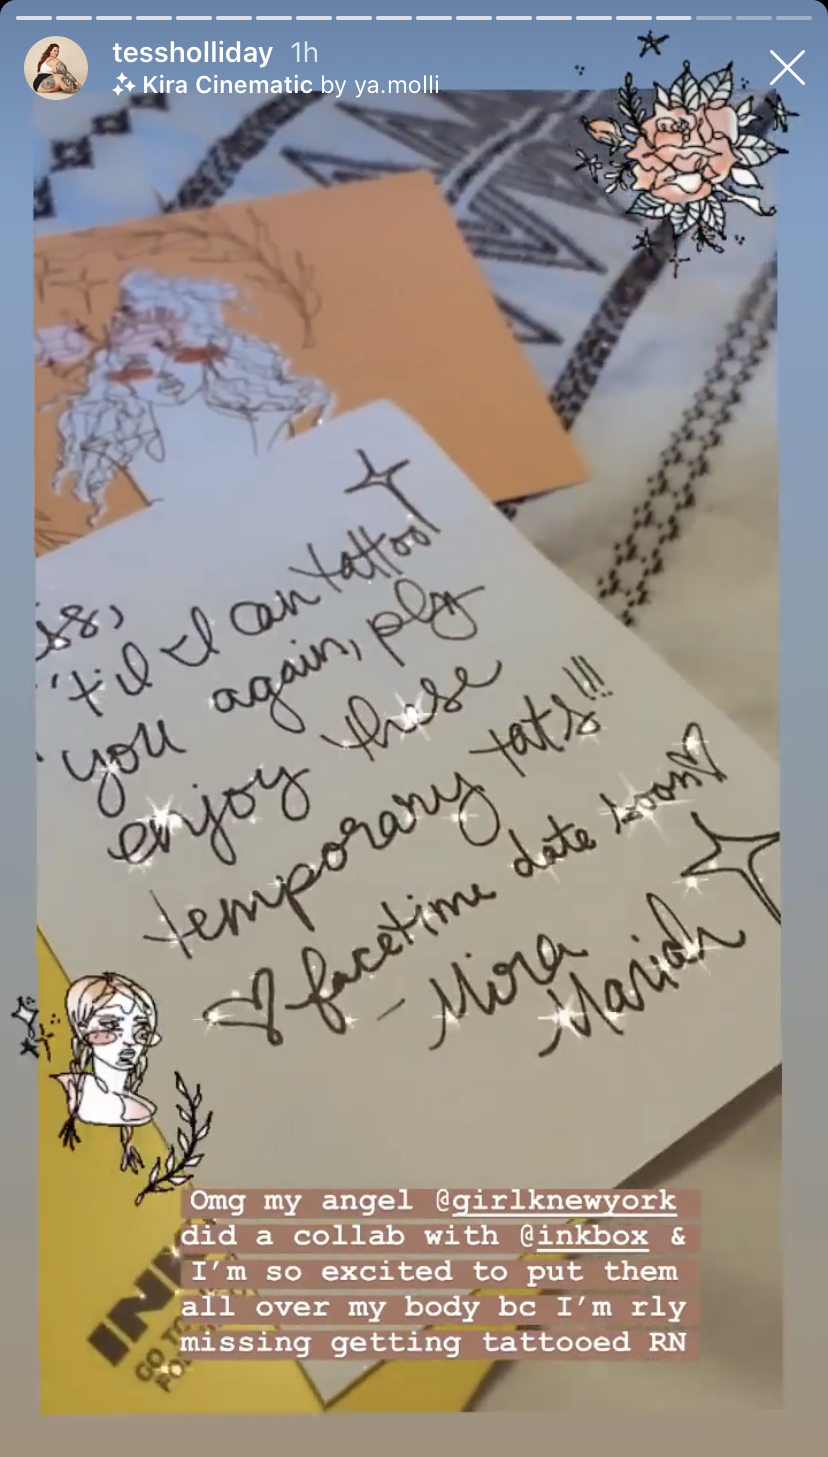 tessholliday 1h
Kira Cinematic by ya.molli
ss,
'til I can tattoo
you again, plz
enjoy these
temporary tats!!!
facetime date soon
- Mira
Mariah
INK
GO TO
FO
Omg my angel @girlknewyork
did a collab with @inkbox &
I'm so excited to put them
all over my body bc I'm rly
missing getting tattooed RN